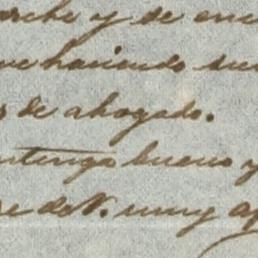 arche y de enc
ue haciendo su
s de ahogado.
ntengo bueno y
re de V. muy af